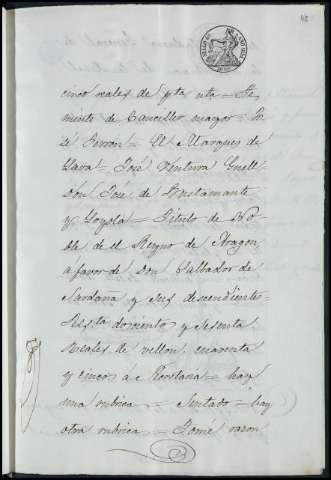 42
cinco reales de pta nta = Te-
niente de Canciller mayor = Jo-
sé Perron = El Marques de
Gaval José Ventura Guell
Don José de Bustamante
y Loyola = Titulo de No-
ble de el Reyno de Aragon,
á favor de Don Salbador de
Sardaña y sus descendientes
Res.ta doscientos y sesenta
Reales de vellon: cuarenta
y cinco á Secretaria = hay
una rubrica = Sentado = hay
otra rubrica = Tomé razon